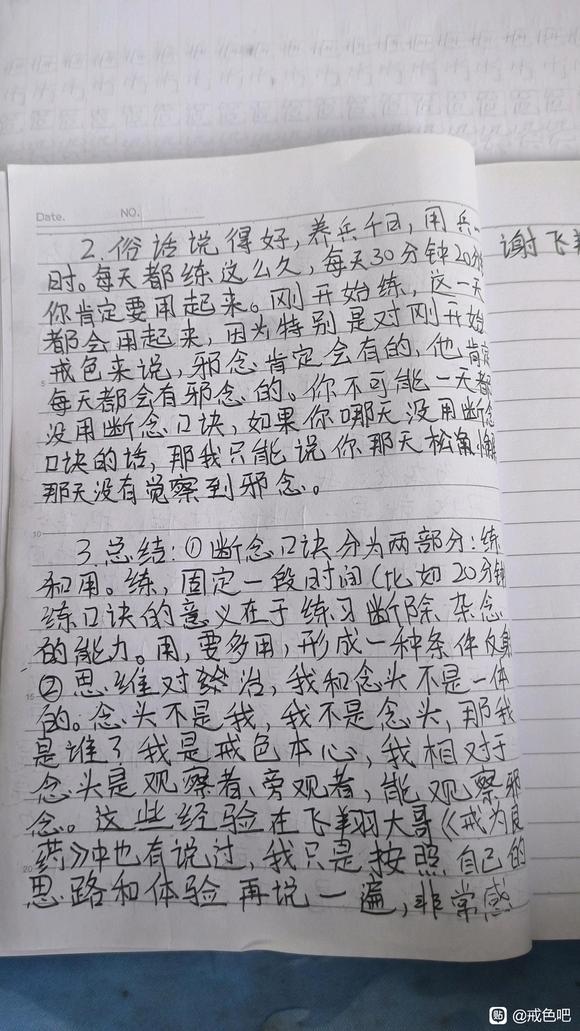 Date. NO.
2.俗话说得好,养兵千日,用兵一
时。每天都练这么久,每天30分钟20分钟
你肯定要用起来。刚开始练,这一天
都会用起来,因为特别是对刚开始
戒色来说,邪念肯定会有的,他肯定
每天都会有邪念的。你不可能一天都
没用断念口诀,如果你哪天没用断念
口诀的话,那我只能说你那天松懈
那天没有觉察到邪念。
3.总结:①断念口诀分为两部分:练
和用。练,固定一段时间(比如20分钟
练口诀的意义在于练习断除杂念
的能力。用,要多用,形成一种条件反射
②思维对治,我和念头不是一体
的。念头不是我,我不是念头,那我
是谁?我是戒色本心,我相对于
念头是观察者、旁观者,能观察邪
念。这些经验在飞翔大哥《戒为良
药》中也有说过,我只是按照自己的
思路和体验再说一遍,非常感
谢飞翔
5
10
15
20
贴 @戒色吧